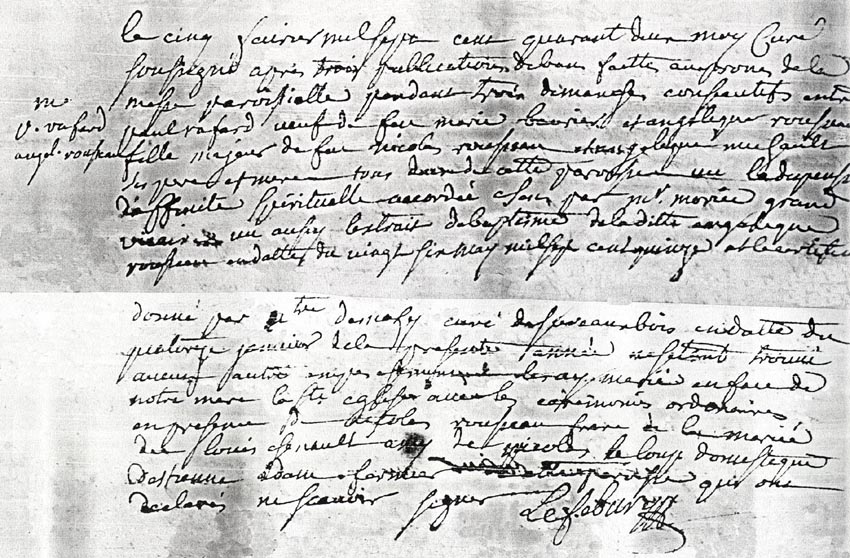 le cinq fevrier mil sept cent quarant deux moy Curé
soussigné apres trois publications de bans faittes au prone de la
messe paroissialle pendant trois dimanches consecutifs entre
m
p. rafard
angel. rousseau
paul rafard veuf de feu marie et angelique rousseau
fille majeur de feu nicolas rousseau et angelique
ses pere et mere tous deux de cette paroisse vu la dispense
daffinité spirituelle accordée par mr. grand
vicaire vu aussy lextrait de baptisme de la ditte angelique
rousseau en datte du vingt six may mil sept cent quinze et le certificat
donné par curé de en datte du
quatorze janvier de la presente année ne setant trouvé
aucun autre je les ay marié en face de
notre mere la ste eglise avec les ceremonies ordinaires
en presence de nicolas rousseau frere de la mariée
de louis de nicolas le loup domestique
destienne adam fermier qui ont
declarés ne scavoir signer Lefebure